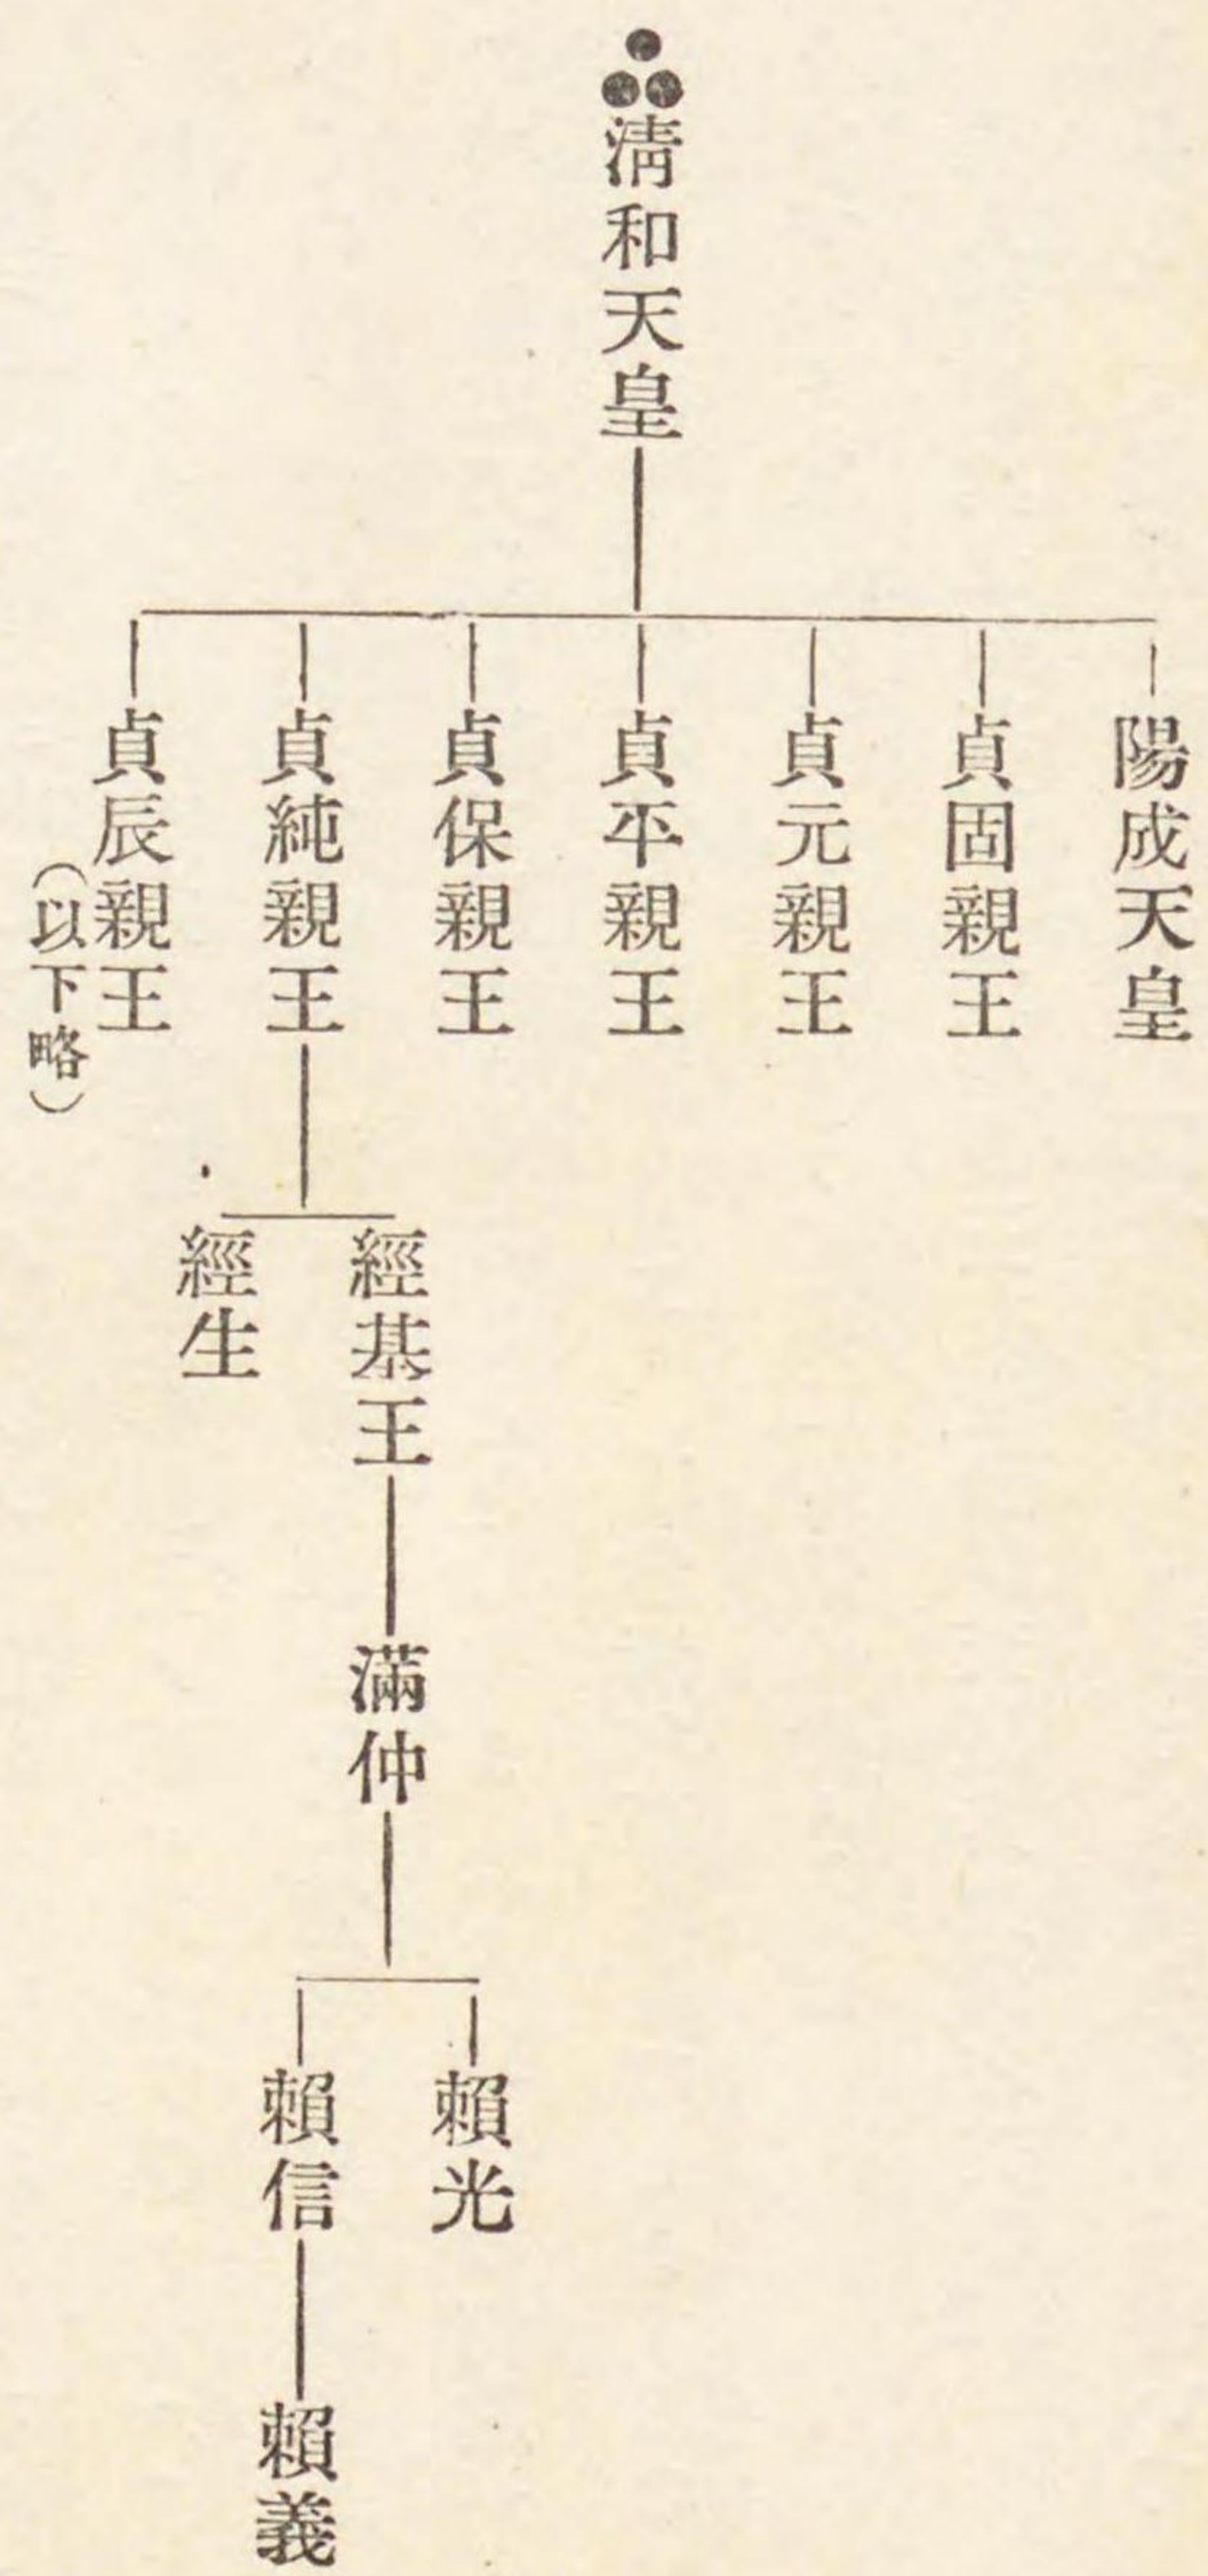 淸和天皇
陽成天皇
貞固親王
貞元親王
貞平親王
貞保親王
貞純親王
貞辰親王
(以下略)
經基王
經生
滿仲
賴光
賴信
賴義